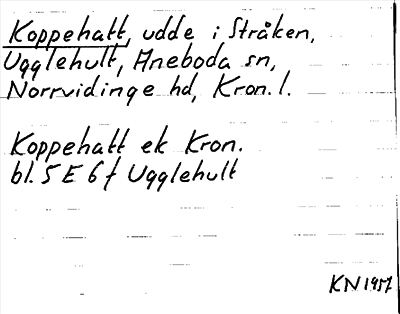 Koppehatt, udde i Stråken,
Ugglehult, Aneboda sn,
Norrvidinge hd, Kron. l.
Koppehatt ek Kron.
bl. 5 E 6 f Ugglehult
KN 1957